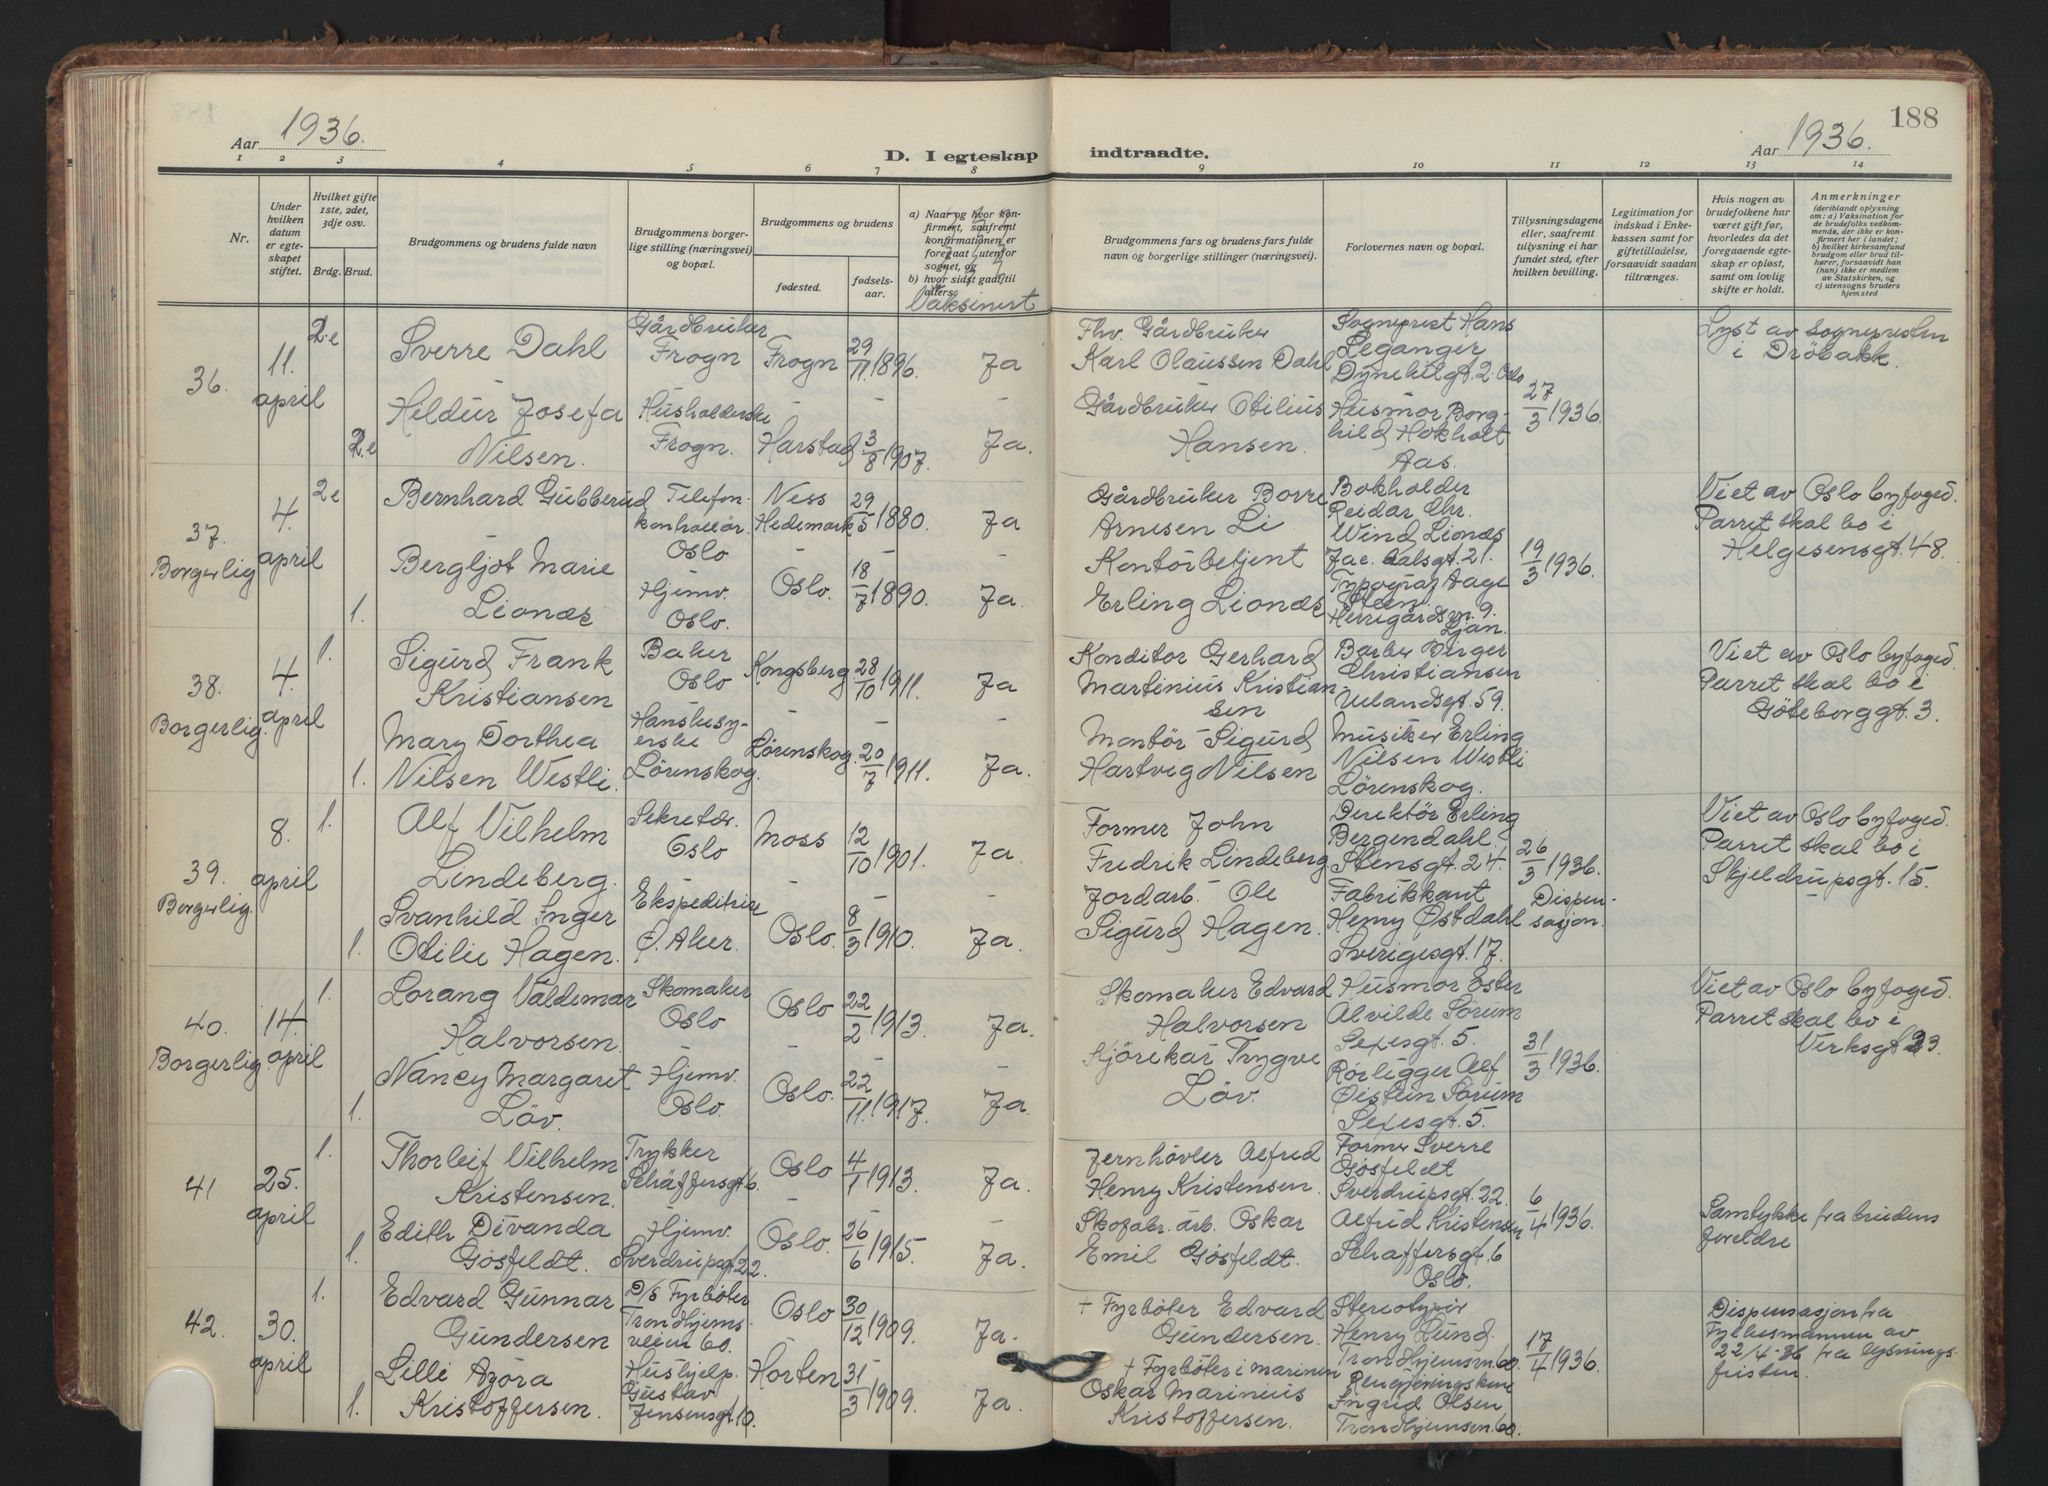 188
Aar 1936.
D. I egteskap indtraadte.
Aar 1936.
1 2 3 4 5 6 7 8 9 10 11 12 13 14
Nr.
Under hvilken datum er egteskapet stiftet.
Hvilket gifte 1ste, 2det, 3dje osv.
Brdg. Brud.
Brudgommens og brudens fulde navn
Brudgommens borgerlige stilling (næringsvei) og bopæl.
Brudgommens og brudens
fødested.
fødselsaar.
a) Naar og hvor konfirmert, saafremt konfirmationen er foregaat utenfor sognet, og
b) hvor sidst gaat til alters.
Vaksinert
Brudgommens fars og brudens fars fulde navn og borgerlige stillinger (næringsvei).
Forlovernes navn og bopæl.
Tillysningsdagene eller, saafremt tillysning ei har fundet sted, efter hvilken bevilling.
Legitimation for indskud i Enkekassen samt for giftetilladelse, forsaavidt saadan tiltrænges.
Hvis nogen av brudefolkene har været gift før, hvorledes da det foregaaende egteskap er opløst, samt om lovlig skifte er holdt.
Anmerkninger
(deriblandt oplysning om: a) Vaksination for de brudefolks vedkommende, der ikke er konfirmert her i landet; b) hvilket kirkesamfund brudgom eller brud tilhører, forsaavidt han (hun) ikke er medlem av Statskirken, og c) utensogns bruders hjemsted
36.
11. april
2.e
Sverre Dahl
Gårdbruker
Frogn
Frogn
29/11 1896.
Ja
Fhv. Gårdbruker
Karl Olaussen Dahl
Sogneprest Hans
Leganger
27/3 1936.
Lyst av sognepresten
i Drøbakk.
2.e
Hildur Josefa
Nilsen.
Husholderske
Frogn.
Harstad
3/8 1907.
Ja.
Gårdbruker Otilius
Hansen.
Husmor Borghild Hokholt
Aas.
37.
Borgerlig
4. april
2e
Bernhard Gubberud
Telefonkontrollör
Oslo
Ness
Hedemark
29/5 1880.
Ja
Gårdbruker Borre
Arnesen Li
Bokholder
Reidar Chr.
Wind Lionæs
Jac. Aalsgt. 21.
19/3 1936.
Viet av Oslo byfoged.
Parret skal bo i
Helgesensgt. 48.
1.
Bergljot Marie
Lionæs
Hjemv.
Oslo.
Oslo.
18/7 1890.
Ja.
Kontorbetjent
Erling Lionæs
Typograf Aage
Steen
Herregårdsvn. 9.
Ljan.
38.
Borgerlig.
4. april
1.
Sigurd Frank
Kristiansen
Baker
Oslo
Kongsberg
28/10 1911.
Ja
Konditor Gerhard
Martinius Kristiansen
Barber Birger
Christiansen
Uelandsgt. 59.
Viet av Oslo byfoged.
Parret skal bo i
Göteborggt. 3.
1.
Mary Dorthea
Nilsen Westli.
Hanskesyerske
Lörenskog.
Lörenskog.
20/7 1911.
Ja.
Montör Sigurd
Hartvig Nilsen
Musiker Erling
Nilsen Westli
Lörenskog.
39.
Borgerlig.
8. april
1.
Alf Vilhelm
Lindeberg.
Sekretær.
Oslo
Moss
12/10 1901.
Ja.
Former John
Fredrik Lindeberg
Direktör Erling
Bergendahl.
Stensgt. 24.
26/3 1936.
Dispensasjon.
Viet av Oslo byfoged.
Parret skal bo i
Skjeldrupsgt. 15.
1.
Svanhild Inger
Otilie Hagen.
Ekspeditrise
Ö. Aker.
Oslo.
8/3 1910.
Ja.
Jordarb. Ole
Sigurd Hagen.
Fabrikkant
Henry Østdahl
Sverigesgt. 17.
40.
Borgerlig
14. april
1.
Lorang Valdemar
Halvorsen.
Skomaker
Oslo
Oslo
22/2 1913.
Ja.
Skomaker Edvard
Halvorsen
Husmor Ester
Alvilde Sörum
Sexesgt. 5.
31/3 1936.
Viet av Oslo byfoged.
Parret skal bo i
Verksgt.
1.
Nancy Margaret
Löv.
Hjemv.
Oslo.
Oslo.
22/11 1917.
Ja.
Kjörekar Trygve
Löv
Rörligger Alf
Øistein Sörum
Sexesgt. 5.
41
25. april
1.
Thorleif Vilhelm
Kristensen.
Trykker
Schäffersgt. 6.
Oslo
4/1 1913.
Ja.
Jernhövler Alfred
Henry Kristensen.
Former Sverre
Gösfeldt
Sverdrupsgt. 22.
6/4 1936.
Samtykke fra brudens
foreldre
1.
Edith Divanda
Gösfeldt.
Hjemv.
Sverdrupsgt. 22.
Oslo.
26/6 1915.
Ja.
Skofabr. arb. Oskar
Emil Gösfeldt.
Alfrid Kristensen
Schaffersgt. 6
Oslo.
42.
30. april
1.
Edvard Gunnar
Gundersen
D/S Fyrböter
Trondhjemsveien 60.
Oslo
30/12 1909.
Ja.
+ Fyrböter Edvard
Gundersen.
Stereotypör
Henry Lund.
Trondhjemsvn. 60.
17/4 1936.
Dispensasjon fra
Fylkesmannen av
22/4-36 fra lysningsfristen.
1.
Lilli Azora
Kristoffersen.
Hushjelp.
Gustav
Jensensgt. 10.
Horten
31/3 1909.
Ja.
+ Fyrböter i marinen
Oskar Marinius
Kristoffersen.
Rengjøringskone
Ingrid Olsen
Trondhjemsvn. 60.